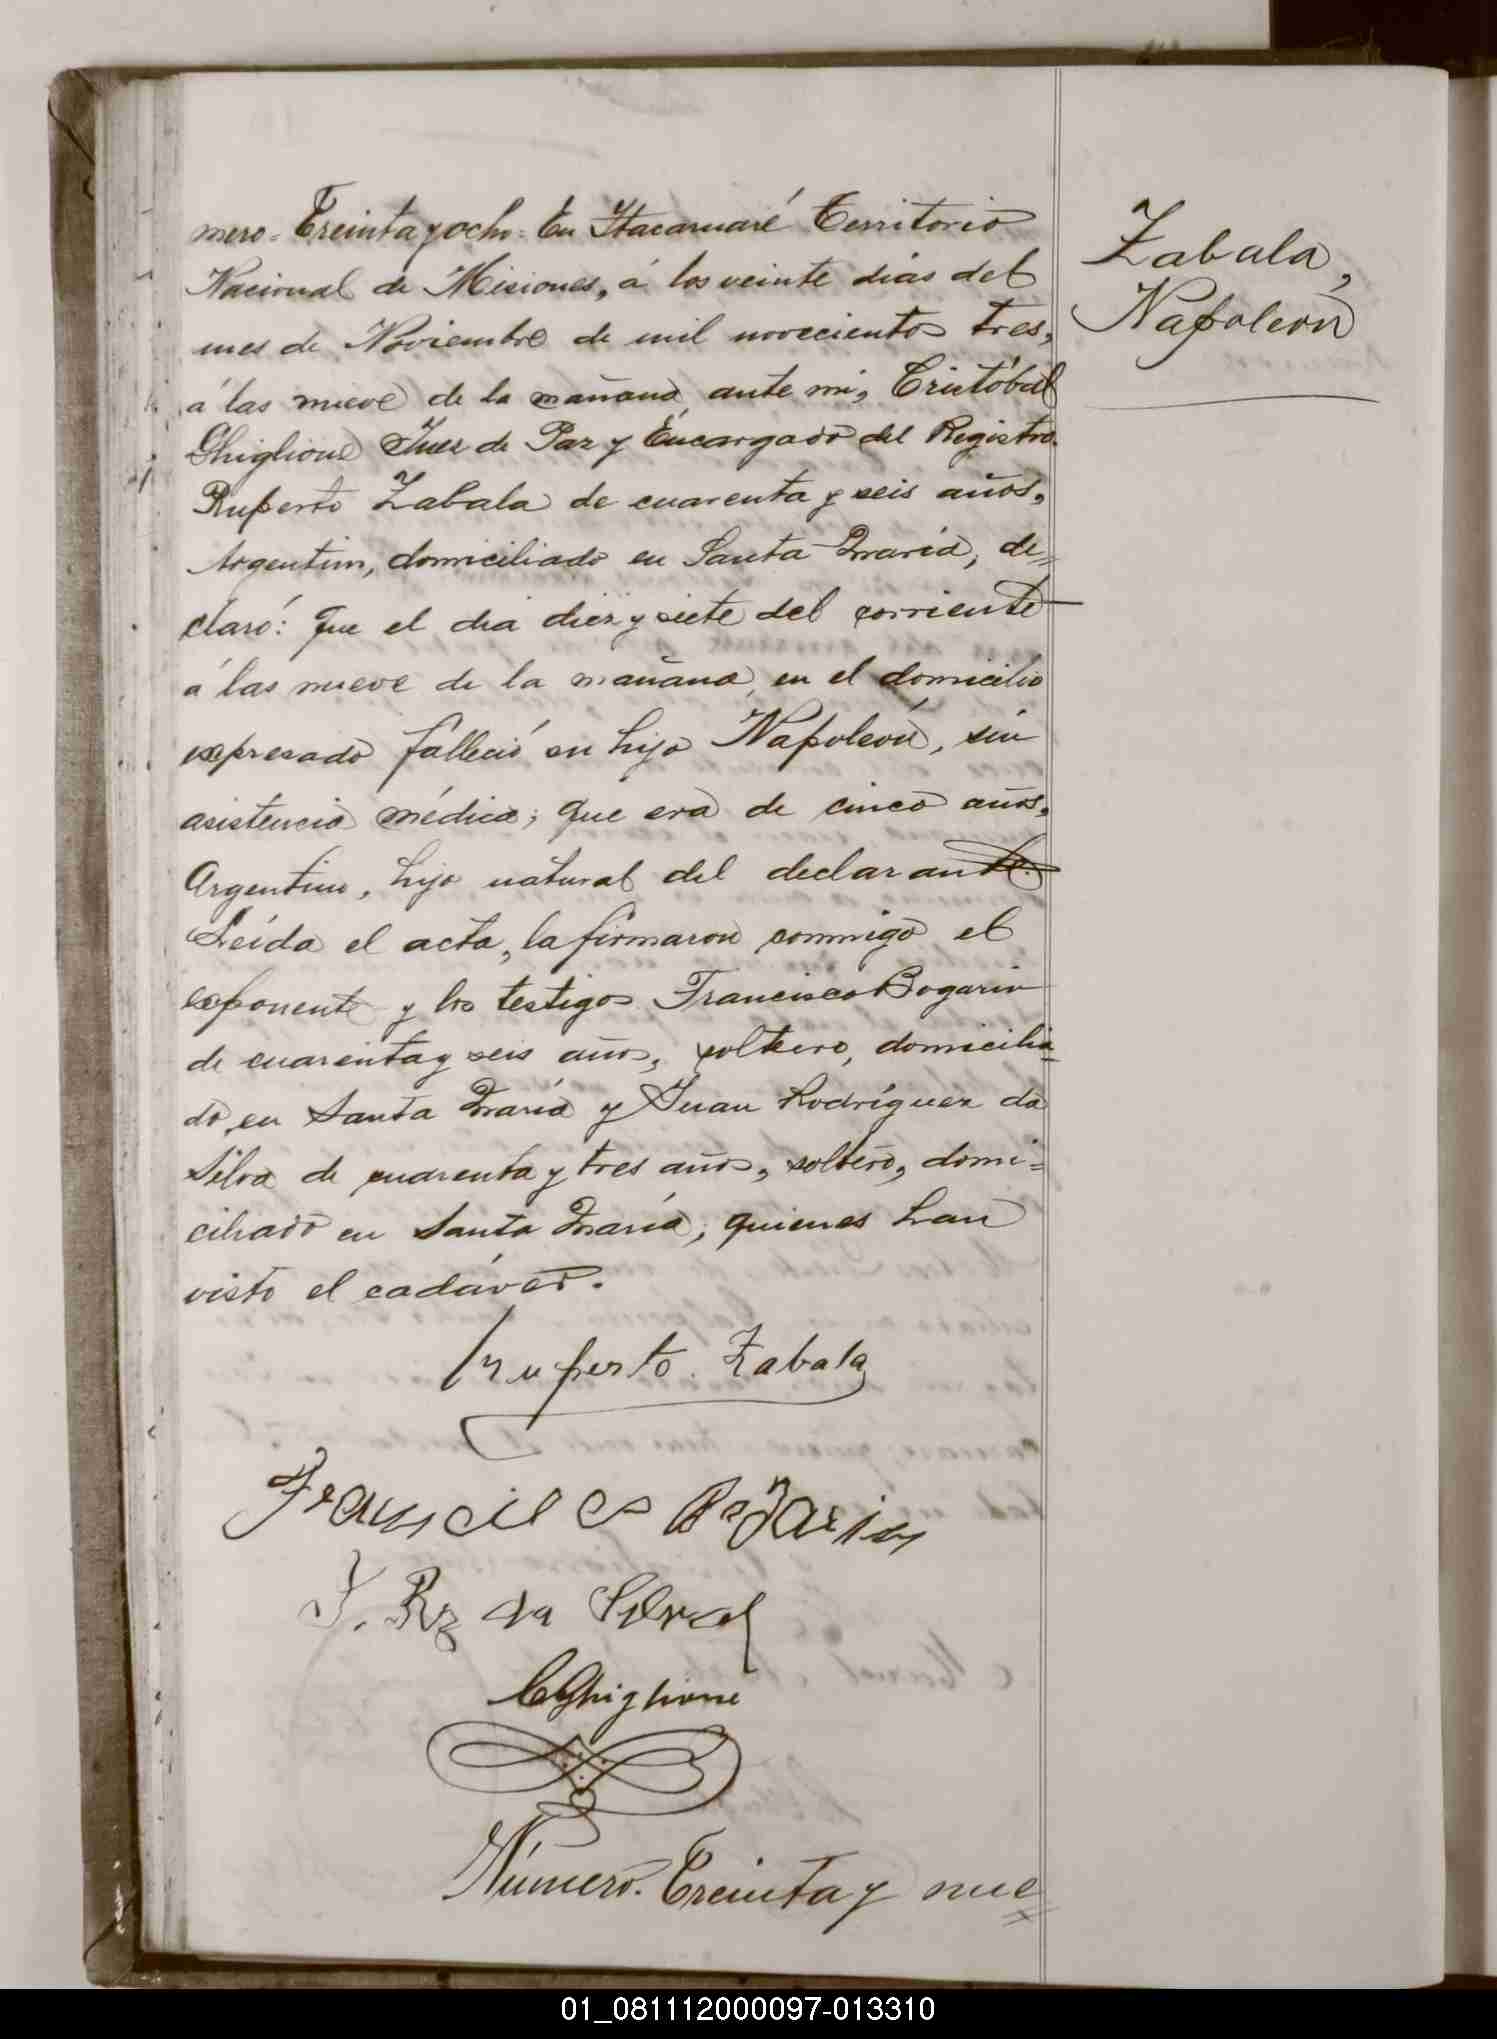 mero= Treinta y ocho= En Itacaruaré Territorio
Nacional de Misiones, á los veinte dias del
mes de Noviembre de mil novecientos tres,
á las nueve de la mañana ante mi, Cristóbal
Ghiglione Juez de Paz y Encargado del Registro.
Ruperto Zabala de cuarenta y seis años,
Argentino, domiciliado en Santa María, de=
claró: que el dia diez y siete del corriente
á las nueve de la mañana en el domicilio
expresado falleció su hijo Napoleón, sin
asistencia médica; que era de cinco años,
Argentino, hijo natural del declarante.
Leída el acta, la firmaron conmigo el
exponente y los testigos Francisco Bogarin
de cuarenta y seis años, soltero, domicilia=
do en Santa María y Juan Rodríguez da
Silva de cuarenta y tres años, soltero, domi=
ciliado en Santa María; quienes han
visto el cadáver.
Ruperto Zabala
Francisco Bogarin
J. Rz da Silva
CGhiglione
Número. Treinta y nue=
Zabala,
Napoleón
01_081112000097-013310